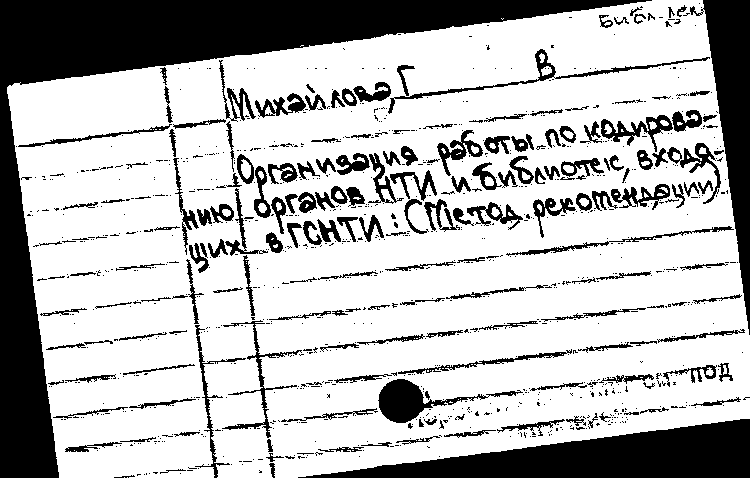 Библ.
Михайлова, Г В
Организация работы по кодирова-
нию органов НТИ и библиотек, входя-
щих в ГСНТИ: (Метод. рекомендации)
см. под